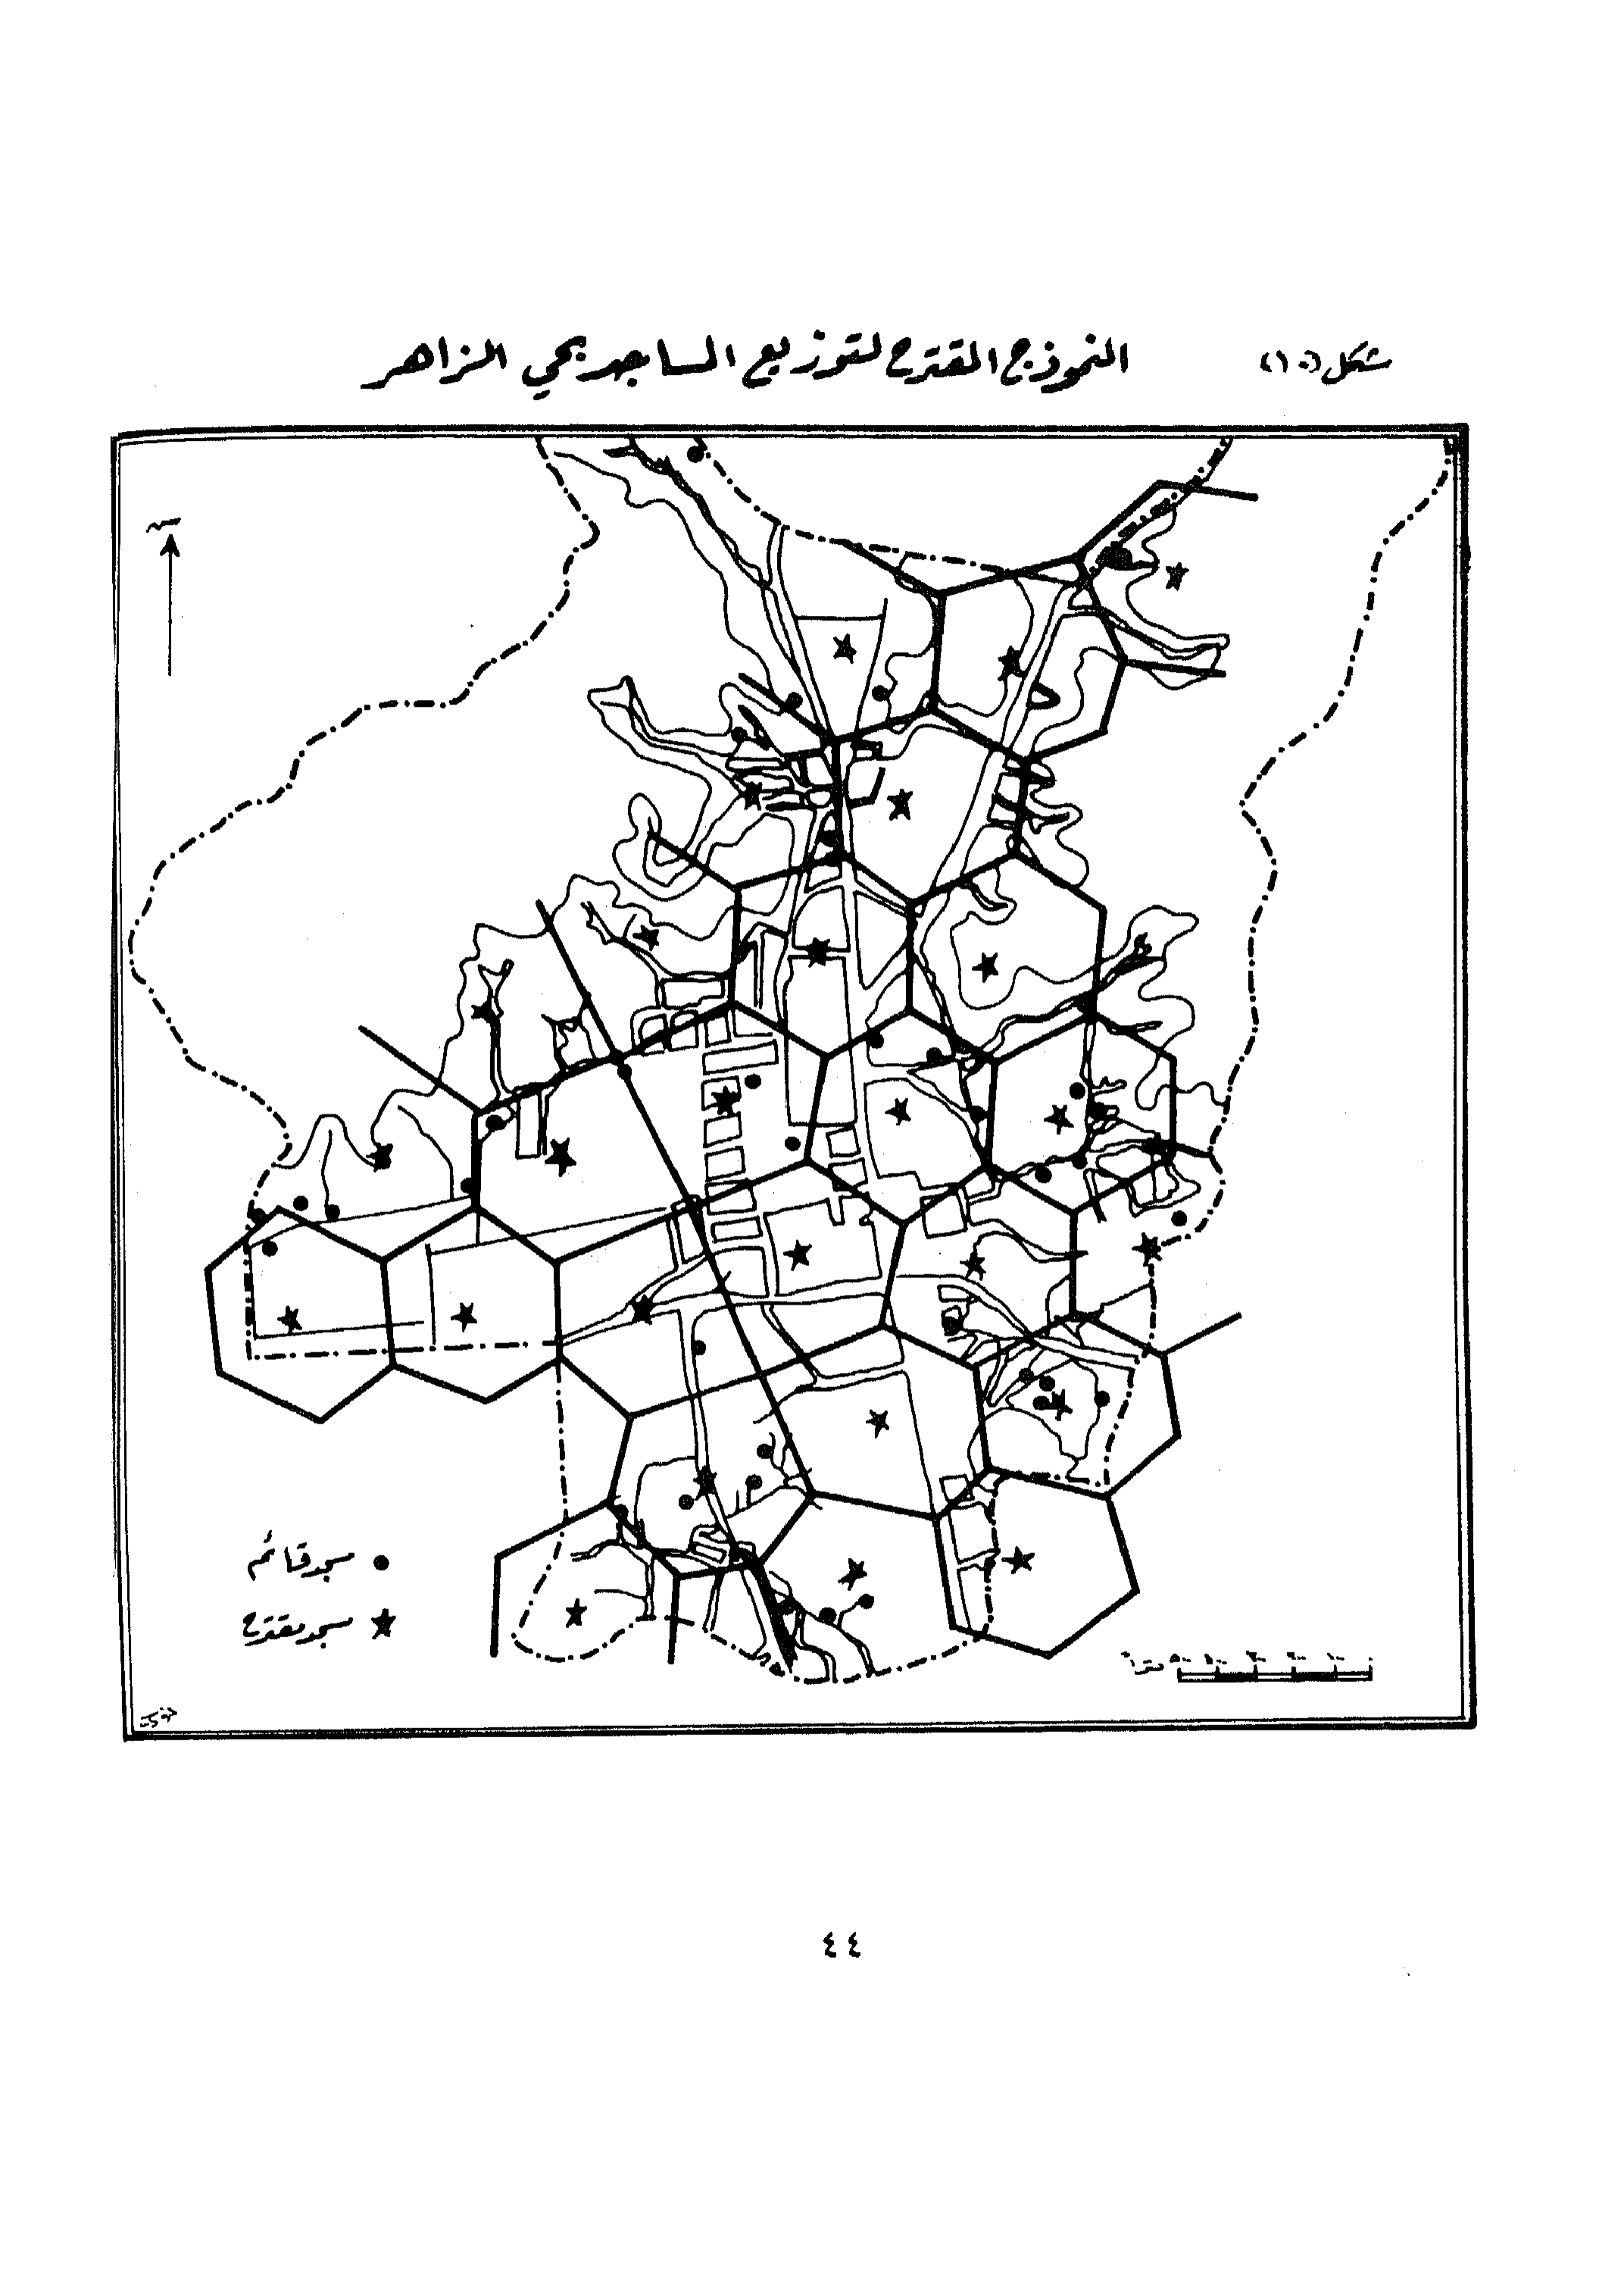 شكل (١٠) النموذج المقترح لتوزيع المساجد بحي الزاهر
مسجد قائم
مسجد مقترح
٤٤